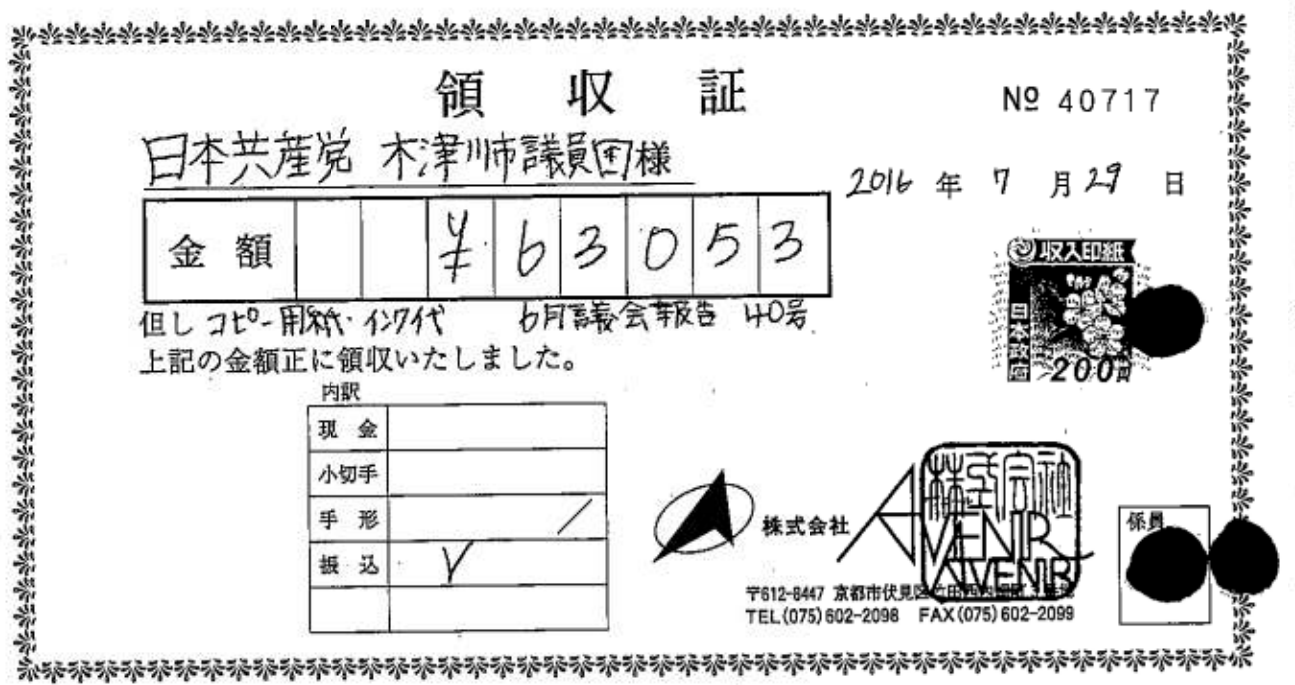 領 収 証
№ 40717
日本共産党 木津川市議員団様
2016 年 7 月 29 日
金 額 ¥ 6 3 0 5 3
収入印紙
日本政府
200円
但し コピー用紙・インク代 6月議会報告 40号
上記の金額正に領収いたしました。
内訳
現 金
小切手
手 形 /
振 込 ✓
株式会社 AVENIR
AVENIR
係員
〒612-8447 京都市伏見区竹田
TEL(075)602-2098 FAX(075)602-2099